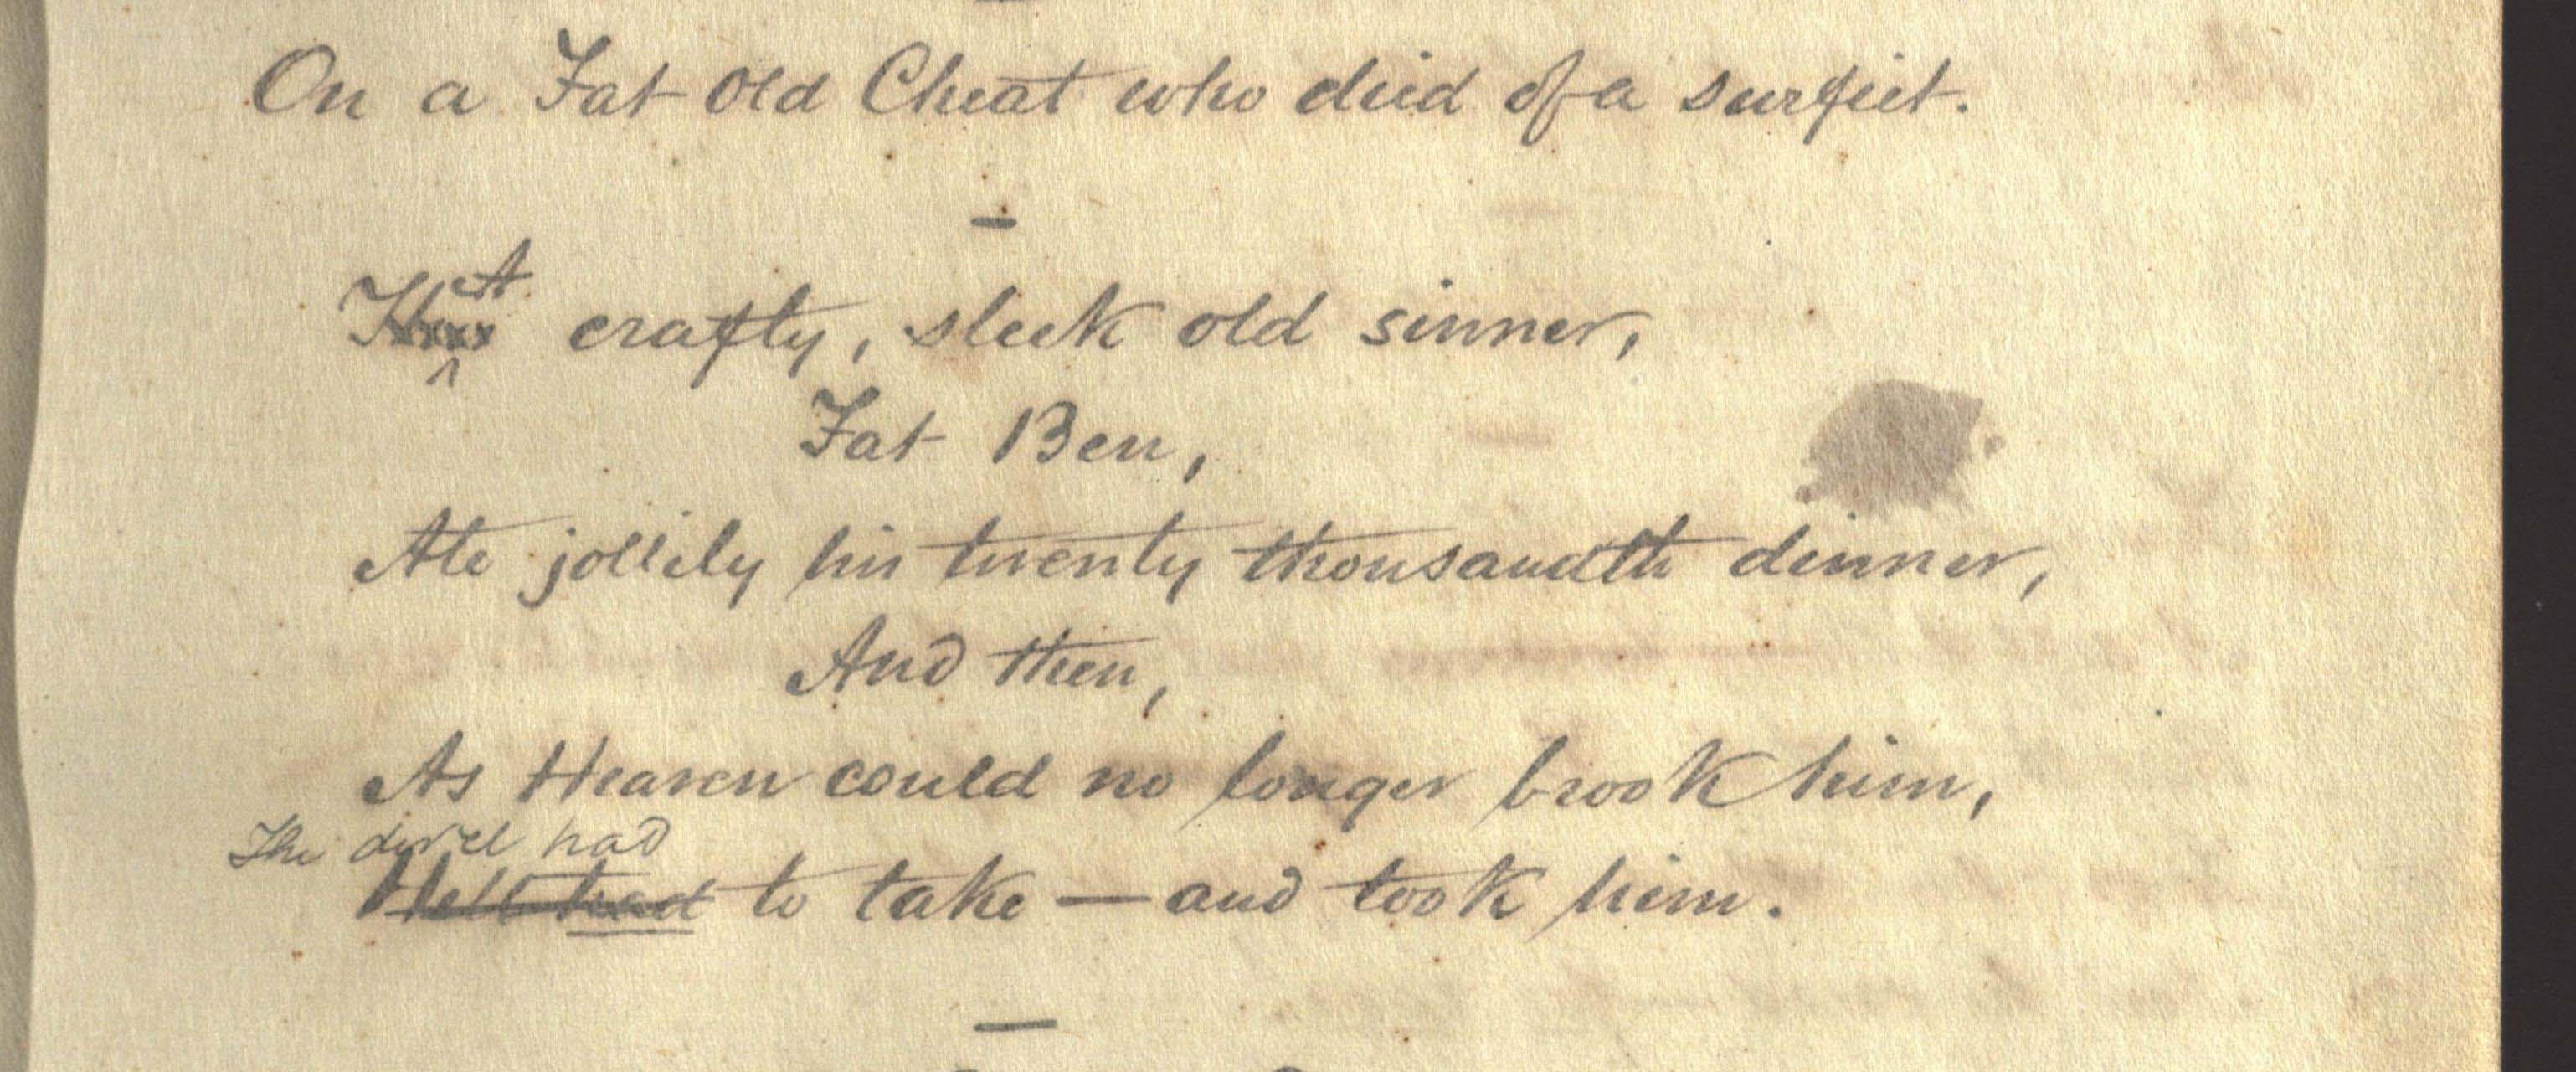 On a Fat Old Cheat who died of a surfeit.
A crafty, sleek old sinner,
Fat Ben,
Ate jollily his twenty thousandth dinner,
And then,
As Heaven could no longer brook him,
The devil had
Hell had to take — and took him.